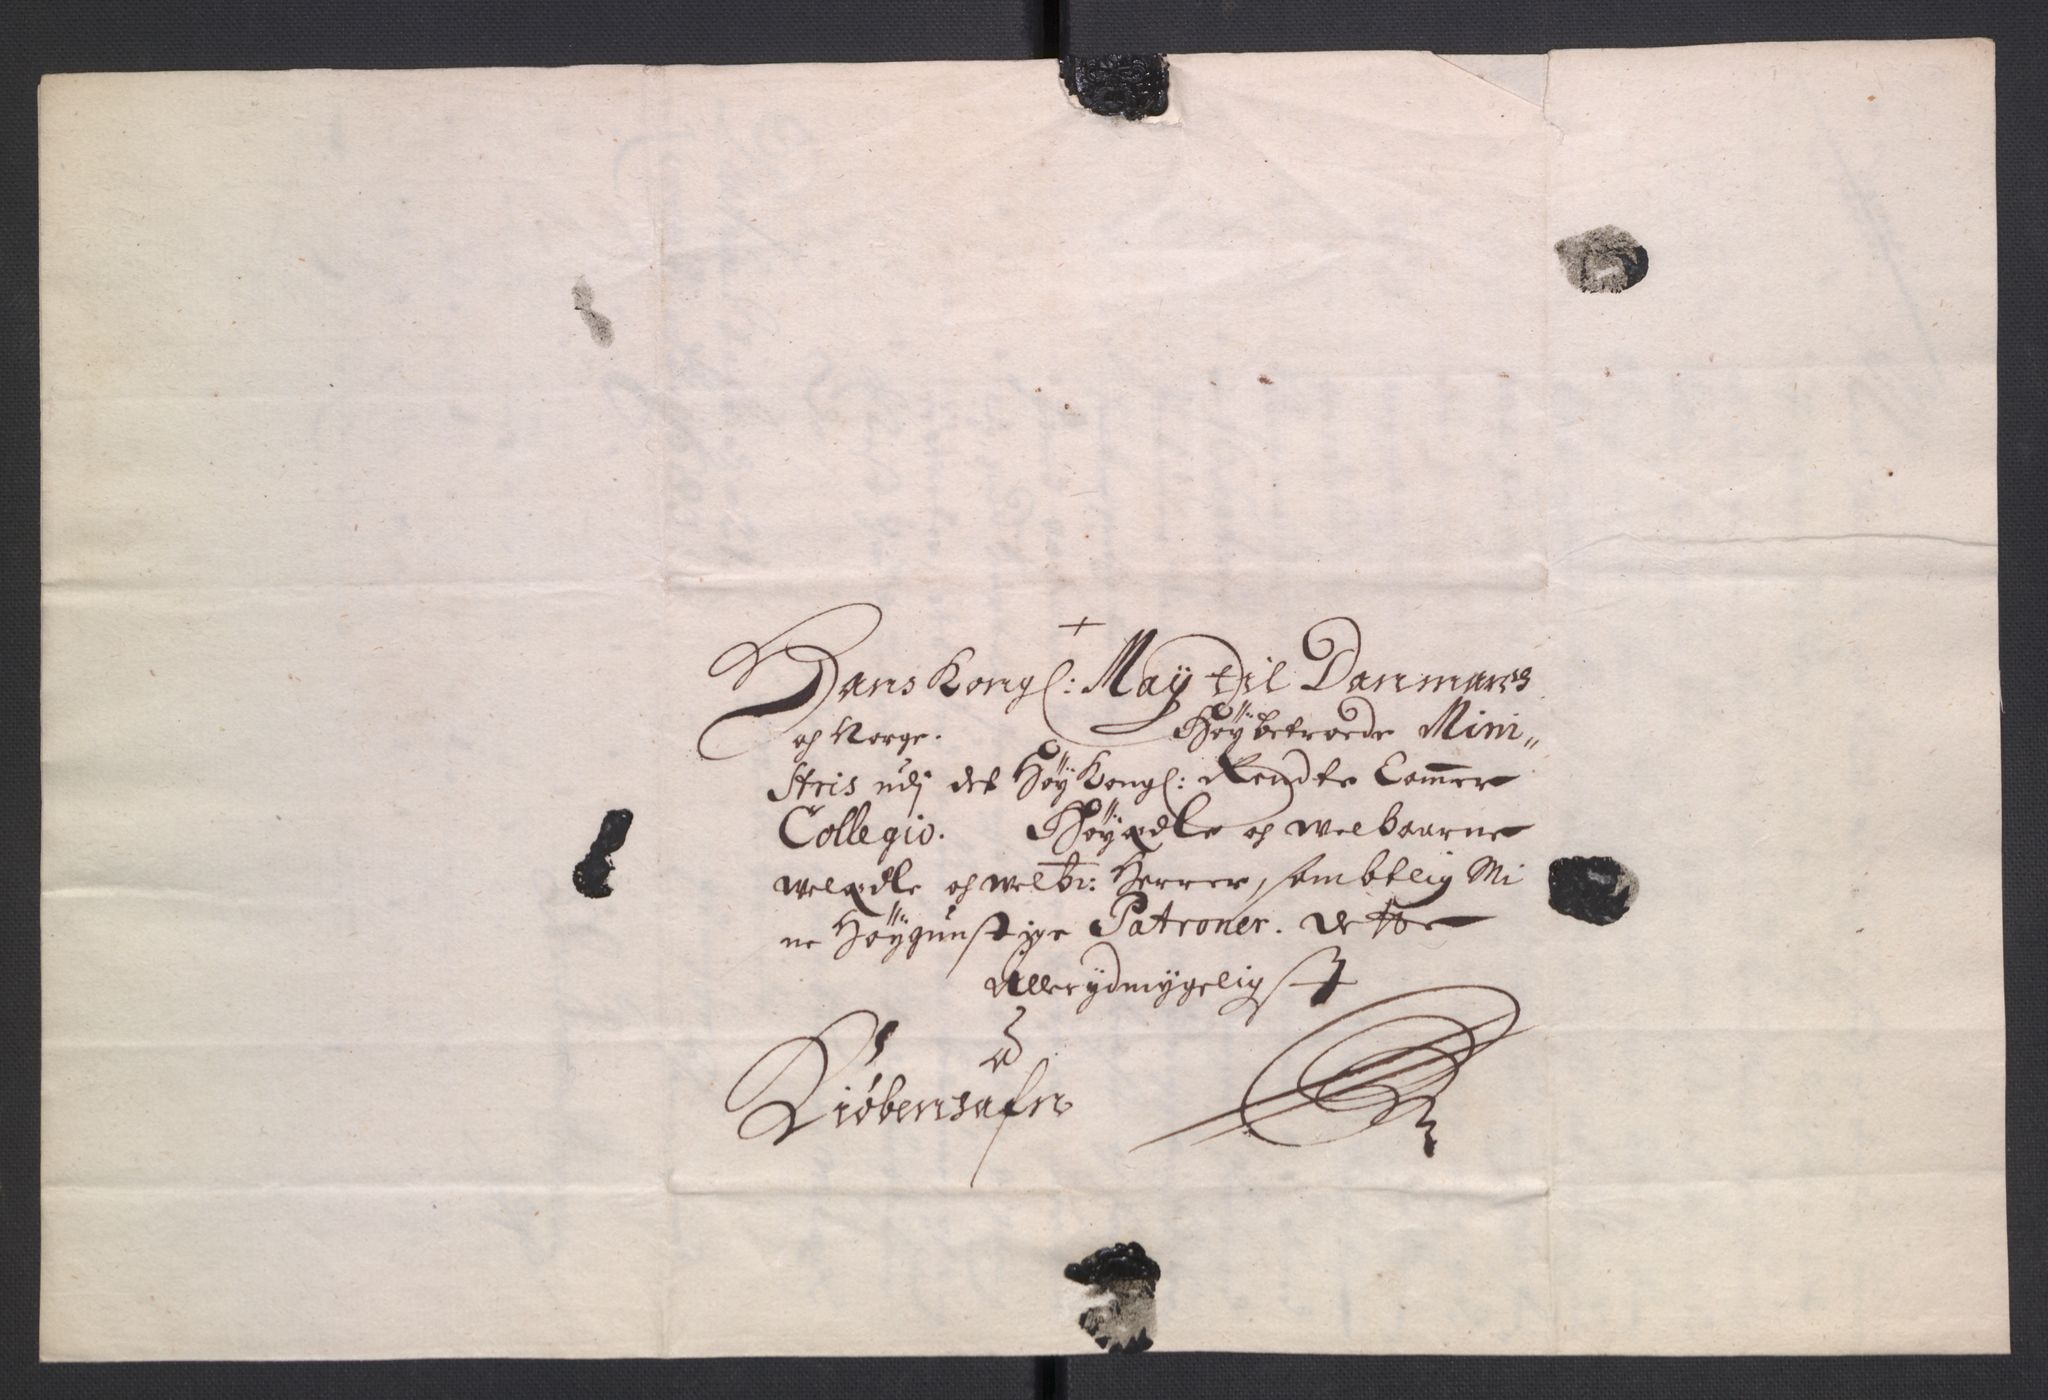 Hans Kongl: May til Danmarcs
og Norge. Høybetroede Mini„
Stris udj det Høy Kongl: Rendte Cam̅er
Collegio. Høyædle og welbaarne
welædle og welbr: Herrer, sambtlig Mi
ne Høygunstige Patroner. dette
Allerydmygeligst
a
Kiøbenhafn